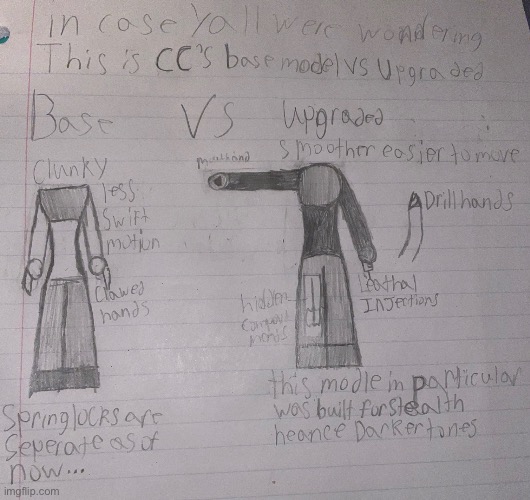 in case Yall were wondering
This is CC's base model vs Upgraded
Base VS Upgraded
smoother easier to move
Clunky
less
swift
motion
Clawed
hands
Drill hands
Leathal
Injections
hidden
this modle in particular
was built for stealth
heance Darker tones
Springlocks are
Seperate as of
now...
imgflip.com